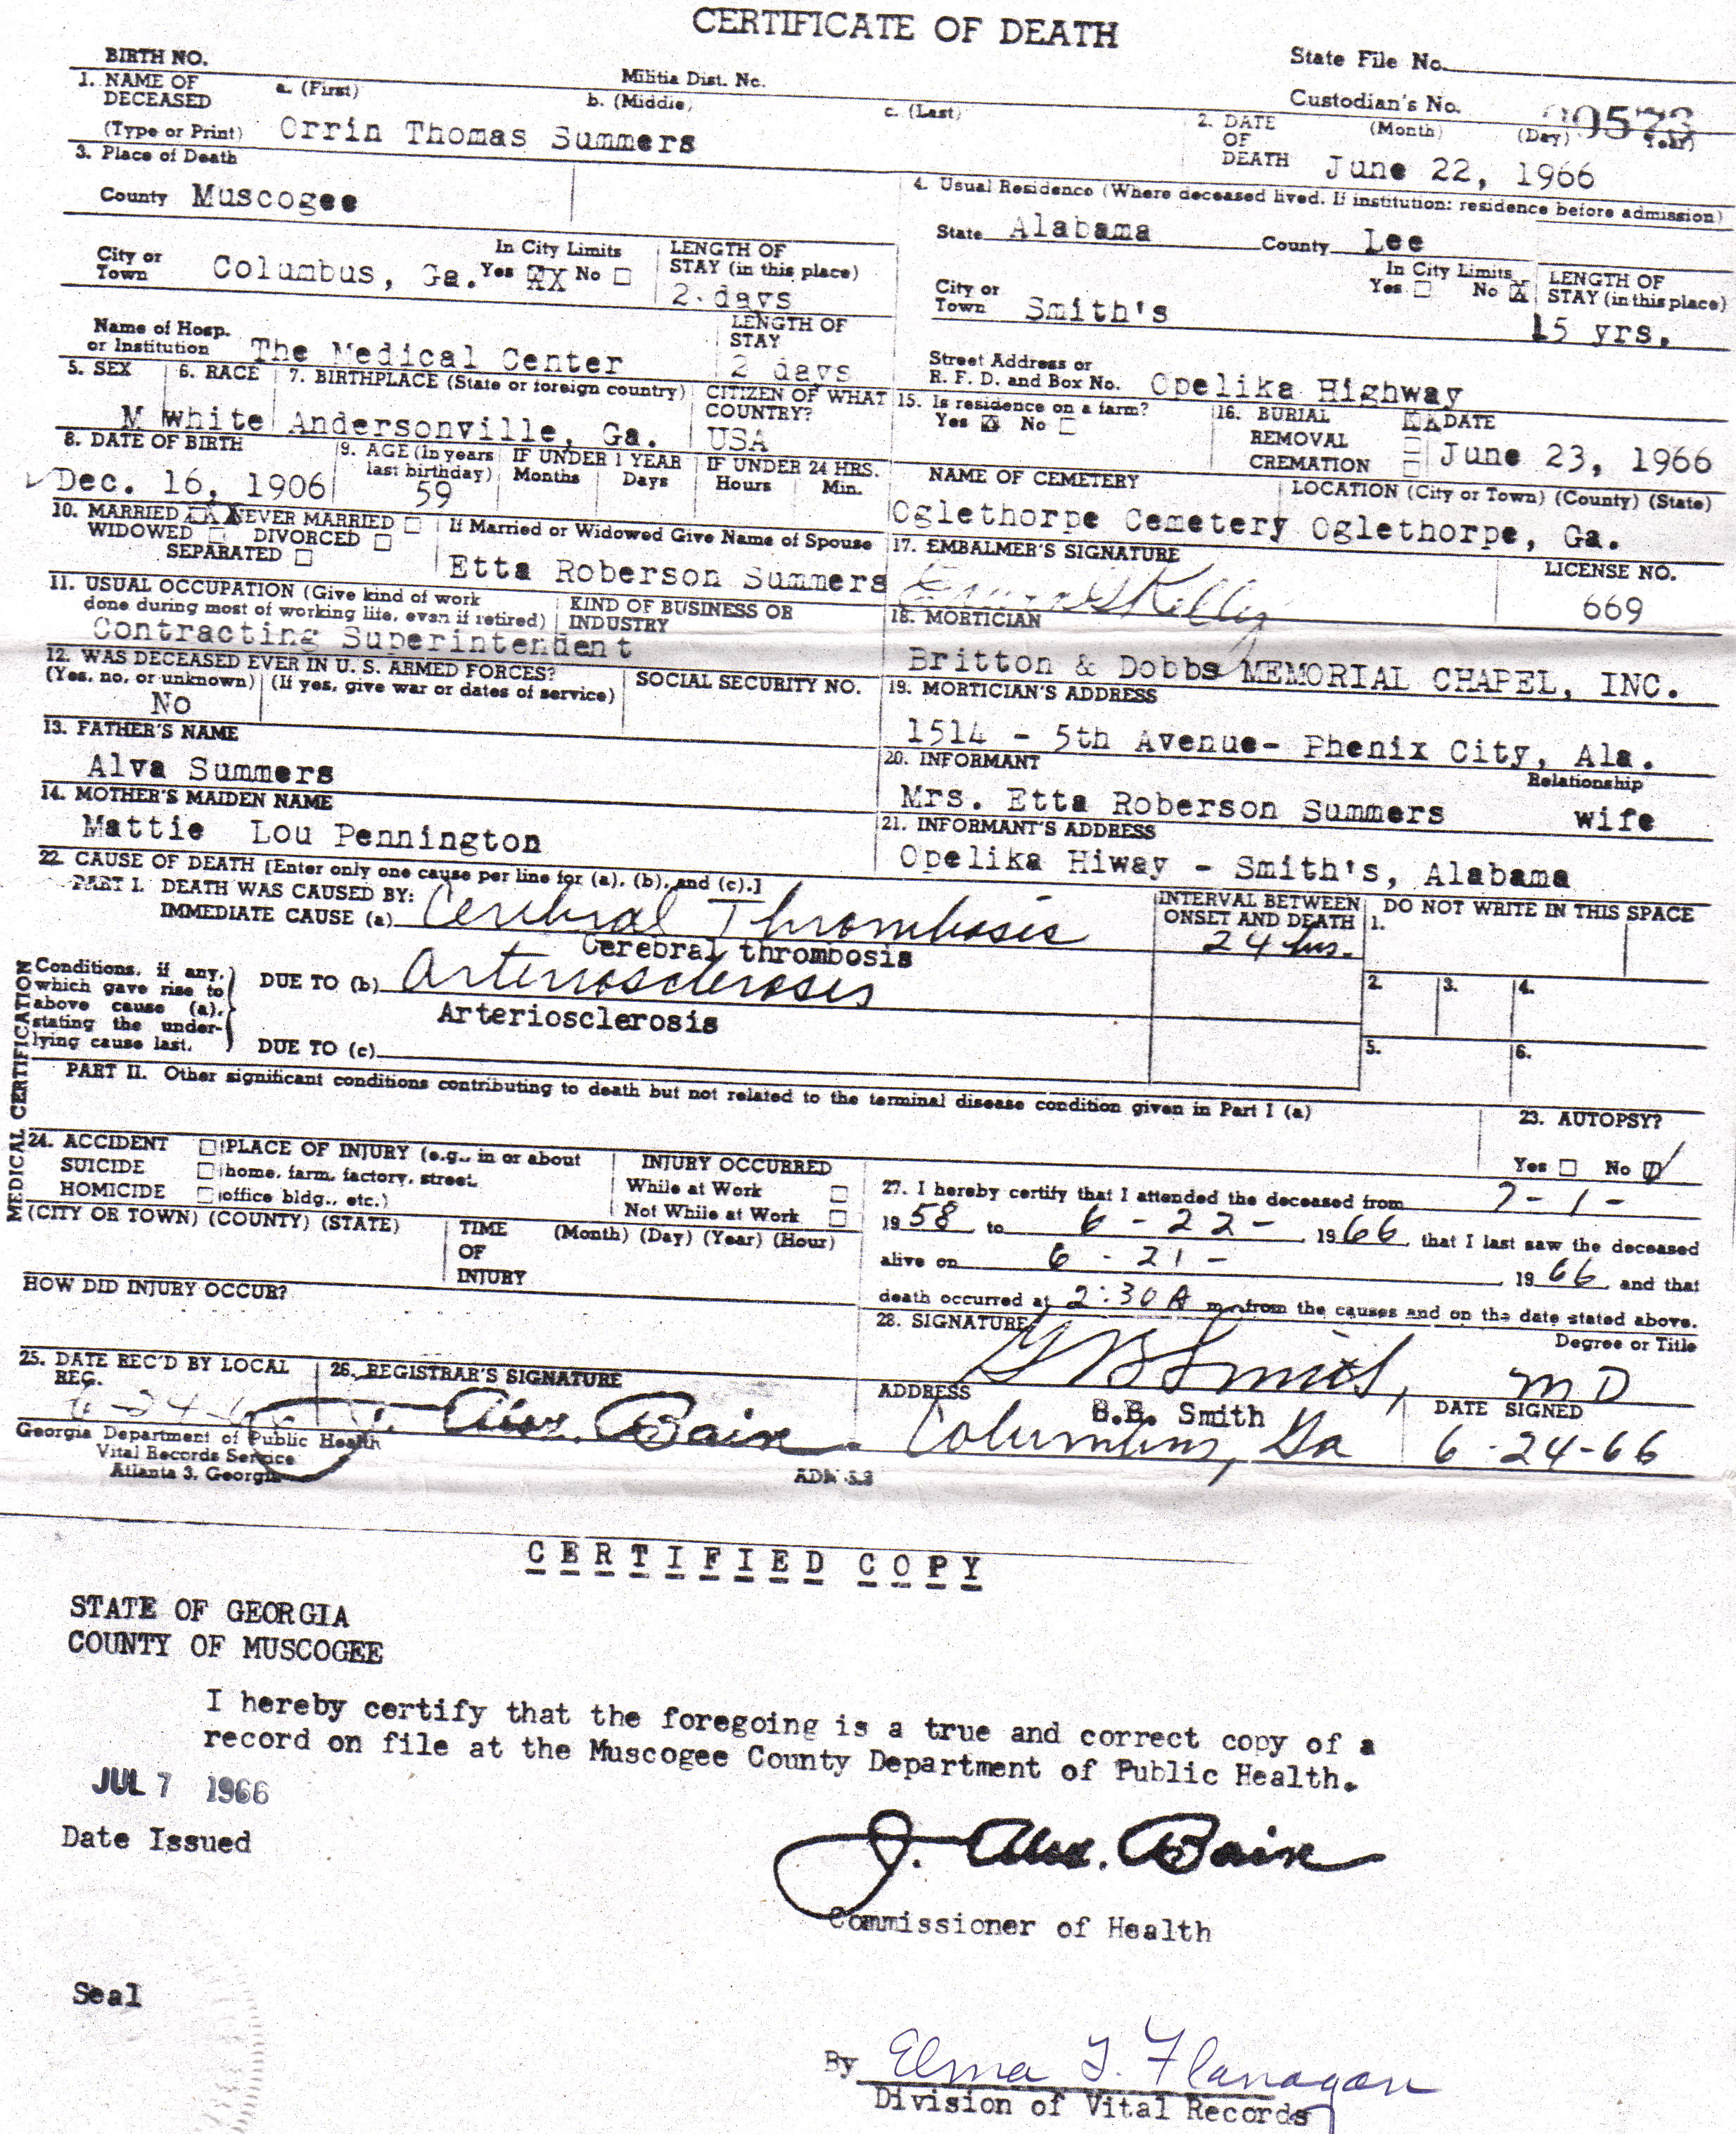 CERTIFICATE OF DEATH
BIRTH NO.
Militia Dist. No.
State File No.
Custodian's No.
1. NAME OF DECEASED
(Type or Print)
a. (First) b. (Middle) c. (Last)
Orrin Thomas Summers
2. DATE OF DEATH
(Month) (Day) (Year)
June 22, 1966
3. Place of Death
County Muscogee
City or Town Columbus, Ga.
In City Limits
Yes XX No
LENGTH OF STAY (in this place)
2 days
Name of Hosp. or Institution The Medical Center
LENGTH OF STAY
2 days
4. Usual Residence (Where deceased lived. If institution: residence before admission)
State Alabama County Lee
City or Town Smith's
In City Limits
Yes No X
LENGTH OF STAY (in this place)
15 yrs.
Street Address or R. F. D. and Box No. Opelika Highway
5. SEX
M
6. RACE
white
7. BIRTHPLACE (State or foreign country)
Andersonville, Ga.
CITIZEN OF WHAT COUNTRY?
USA
8. DATE OF BIRTH
Dec. 16, 1906
9. AGE (In years last birthday)
59
IF UNDER 1 YEAR
Months Days
IF UNDER 24 HRS.
Hours Min.
10. MARRIED XXX NEVER MARRIED
WIDOWED DIVORCED
SEPARATED
If Married or Widowed Give Name of Spouse
Etta Roberson Summers
11. USUAL OCCUPATION (Give kind of work done during most of working life, even if retired)
KIND OF BUSINESS OR INDUSTRY
Contracting Superintendent
12. WAS DECEASED EVER IN U. S. ARMED FORCES?
(Yes, no, or unknown) (If yes, give war or dates of service)
No
SOCIAL SECURITY NO.
13. FATHER'S NAME
Alva Summers
14. MOTHER'S MAIDEN NAME
Mattie Lou Pennington
15. Is residence on a farm?
Yes X No
16. BURIAL XX
REMOVAL
CREMATION
DATE
June 23, 1966
NAME OF CEMETERY
Oglethorpe Cemetery
LOCATION (City or Town) (County) (State)
Oglethorpe, Ga.
17. EMBALMER'S SIGNATURE
LICENSE NO.
669
18. MORTICIAN
Britton & Dobbs MEMORIAL CHAPEL, INC.
19. MORTICIAN'S ADDRESS
1514 - 5th Avenue- Phenix City, Ala.
20. INFORMANT
Relationship
Mrs. Etta Roberson Summers wife
21. INFORMANT'S ADDRESS
Opelika Hiway - Smith's, Alabama
MEDICAL CERTIFICATION
22. CAUSE OF DEATH [Enter only one cause per line for (a), (b), and (c).]
PART I. DEATH WAS CAUSED BY:
IMMEDIATE CAUSE (a) Cerebral Thrombosis
Cerebral thrombosis
Conditions, if any, which gave rise to above cause (a), stating the underlying cause last.
DUE TO (b) Arteriosclerosis
Arteriosclerosis
DUE TO (c)
INTERVAL BETWEEN ONSET AND DEATH
24 hrs.
DO NOT WRITE IN THIS SPACE
1.
2. 3. 4.
5. 6.
PART II. Other significant conditions contributing to death but not related to the terminal disease condition given in Part I (a)
23. AUTOPSY?
Yes No
24. ACCIDENT
SUICIDE
HOMICIDE
PLACE OF INJURY (e.g., in or about home, farm, factory, street, office bldg., etc.)
INJURY OCCURRED
While at Work
Not While at Work
(CITY OR TOWN) (COUNTY) (STATE)
TIME OF INJURY
(Month) (Day) (Year) (Hour)
HOW DID INJURY OCCUR?
27. I hereby certify that I attended the deceased from 7-1-
1958 to 6-22-, 1966, that I last saw the deceased
alive on 6-21-, 1966 and that
death occurred at 2:30 A m., from the causes and on the date stated above.
28. SIGNATURE
Degree or Title
Smith, MD
B. Smith
ADDRESS
Columbus, Ga
DATE SIGNED
6-24-66
25. DATE REC'D BY LOCAL REG.
26. REGISTRAR'S SIGNATURE
J. Alex. Bain.
Georgia Department of Public Health
Vital Records Service
Atlanta 3, Georgia
CERTIFIED COPY
STATE OF GEORGIA
COUNTY OF MUSCOGEE
I hereby certify that the foregoing is a true and correct copy of a
record on file at the Muscogee County Department of Public Health.
JUL 7 1966
Date Issued
J. Alex. Bain
Commissioner of Health
Seal
By Elma T. Flanagan
Division of Vital Records